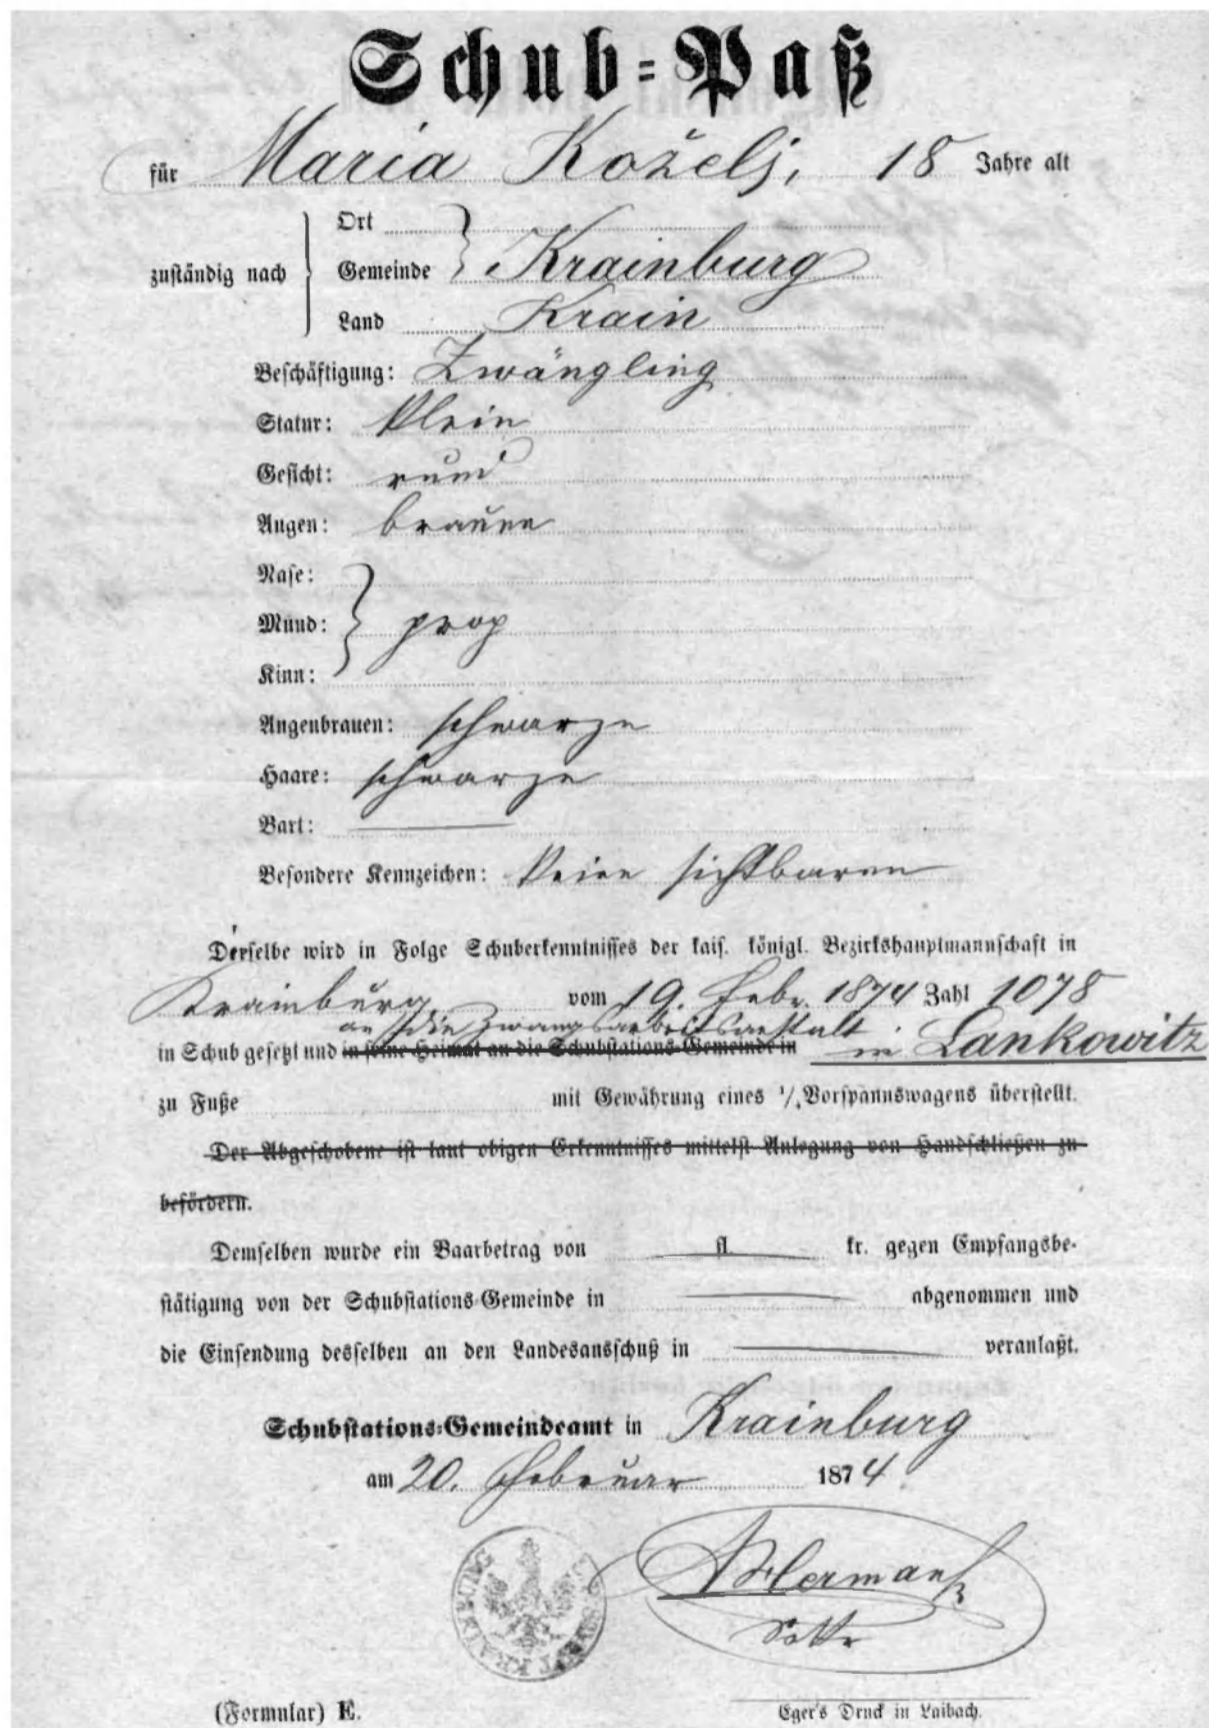 Schub-Paß
für Maria Koželj, 18 Jahre alt
zuständig nach
Ort
Gemeinde Krainburg
Land Krain
Beschäftigung: Zwängling
Statur: klein
Gesicht: rund
Augen: braune
Nase:
Mund: prop
Kinn:
Augenbrauen: schwarze
Haare: schwarze
Bart:
Besondere Kennzeichen: keine sichtbaren
Derselbe wird in Folge Schuberkenntnisses der kais. königl. Bezirkshauptmannschaft in
Krainburg vom 19. Febr. 1874 Zahl 1078
an die Zwangsarbeitsanstalt
in Schub gesetzt und in seine Heimat an die Schubstations-Gemeinde in in Lankowitz
zu Fuße mit Gewährung eines 1/ Vorspannswagens überstellt.
Der Abgeschobene ist laut obigen Erkenntnisses mittelst Anlegung von Handschließen zu
befördern.
Demselben wurde ein Baarbetrag von fl. kr. gegen Empfangsbe-
stätigung von der Schubstations-Gemeinde in abgenommen und
die Einsendung desselben an den Landesausschuß in veranlaßt.
Schubstations-Gemeindeamt in Krainburg
am 20. Februar 1874
KRAINBURG
(Formular) E.
Eger's Druck in Laibach.